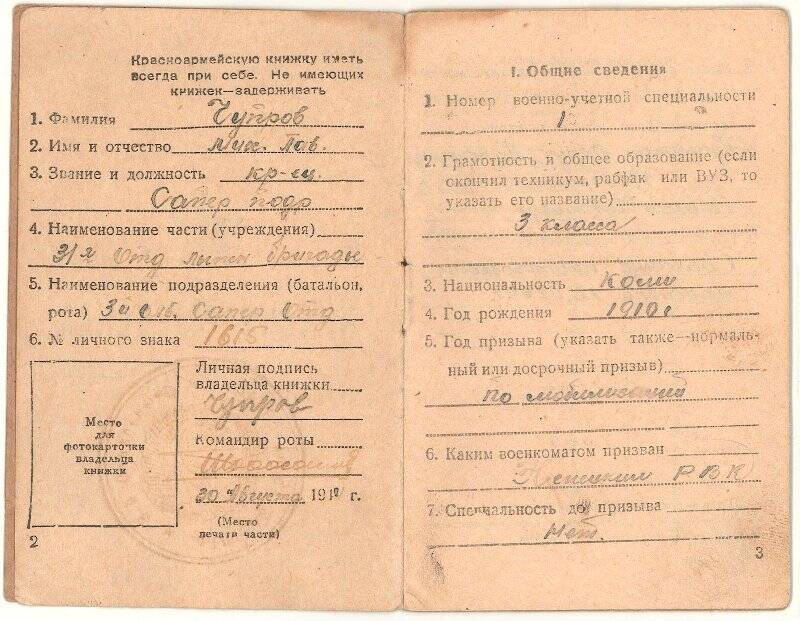 Красноармейскую книжку иметь
всегда при себе. Не имеющих
книжек—задерживать
1. Фамилия Чупров
2. Имя и отчество Мих. Пав.
3. Звание и должность кр-ец
Сапер подр
4. Наименование части (учреждения)
31я Отд лыжн бригады
5. Наименование подразделения (батальон,
рота) Сапер Отд
6. № личного знака 1615
Личная подпись
владельца книжки
Чупров
Командир роты
30 Августа 19 г.
(Место
печати части)
Место
для
фотокарточки
владельца
книжки
2
I. Общие сведения
1. Номер военно-учетной специальности
1
2. Грамотность и общее образование (если
окончил техникум, рабфак или ВУЗ, то
указать его название)
3 класса
3. Национальность Коми
4. Год рождения 1910г
5. Год призыва (указать также—нормаль-
ный или досрочный призыв)
По мобилизаций
6. Каким военкоматом призван
РВК
7. Специальность до призыва
Нет.
3